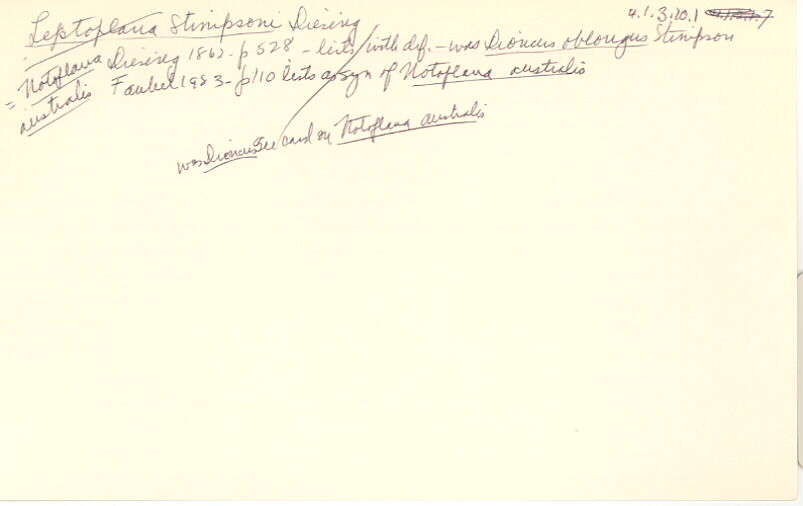 Leptoplana Stimpsoni Diesing 4.1.3.20.1
= Notoplana australis
Diesing 1862 - p 528 - lists with def. - was Dioncus oblongus Stimpson
Faubel 1983 - p 110 lists as syn of Notoplana australis
was Dioncus See card on Notoplana australis